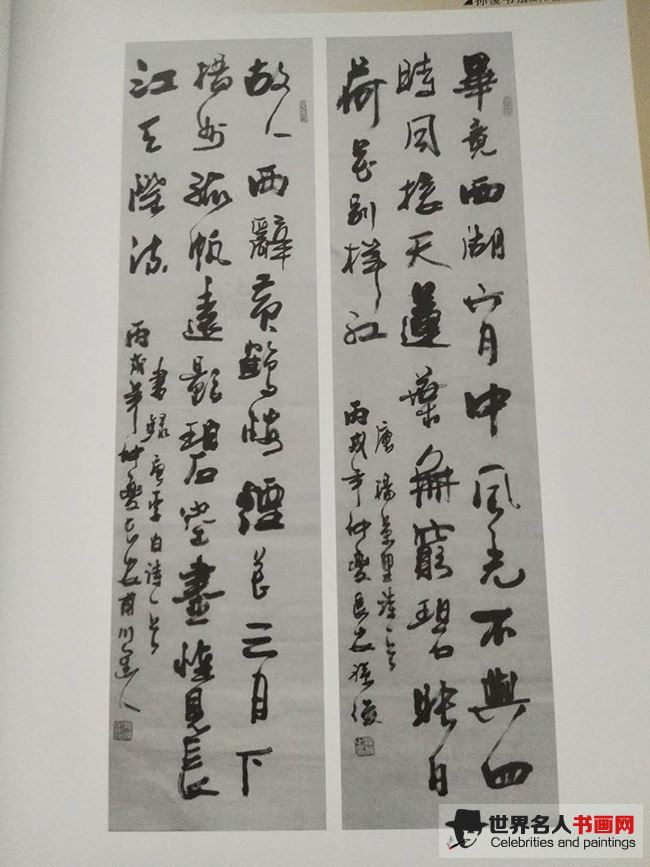 孙俊书法
畢竟西湖六月中風光不與四
時同接天蓮葉無窮碧映日
荷花别樣红
唐楊萬里诗一首
丙戌年仲夏長安孫俊
故人西辭黄鶴楼煙花三月下
揚州孤帆遠影碧空盡惟見長
江天際流
書録唐李白诗一首
丙戌年仲夏長安
世界名人书画网
Celebrities and paintings